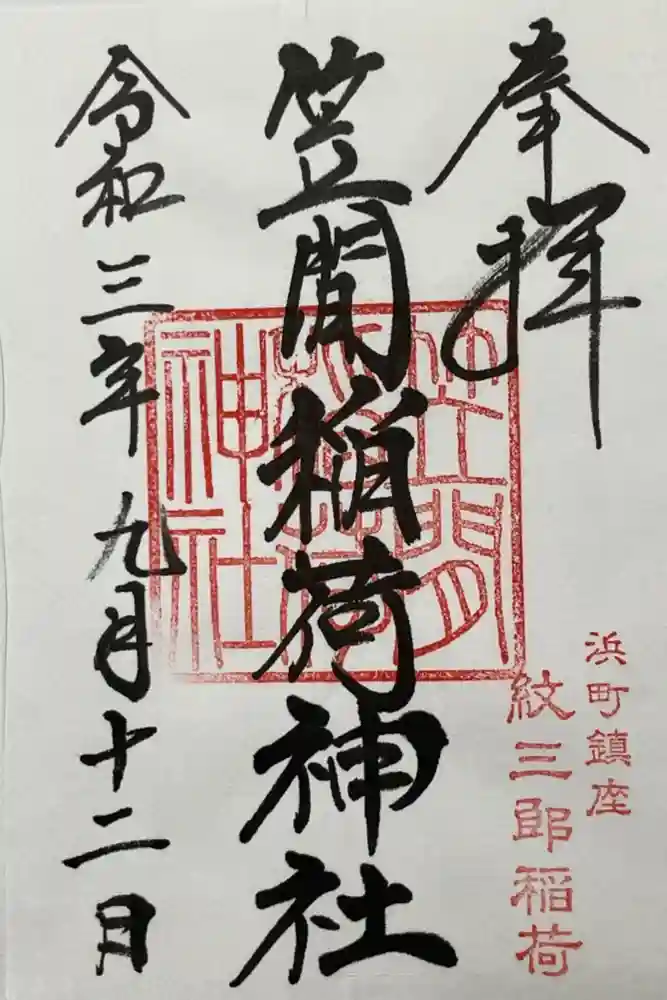 奉拝
浜町鎮座
紋三郎稲荷
笠間稲荷神社
笠間稲荷神社
令和三年九月十二日